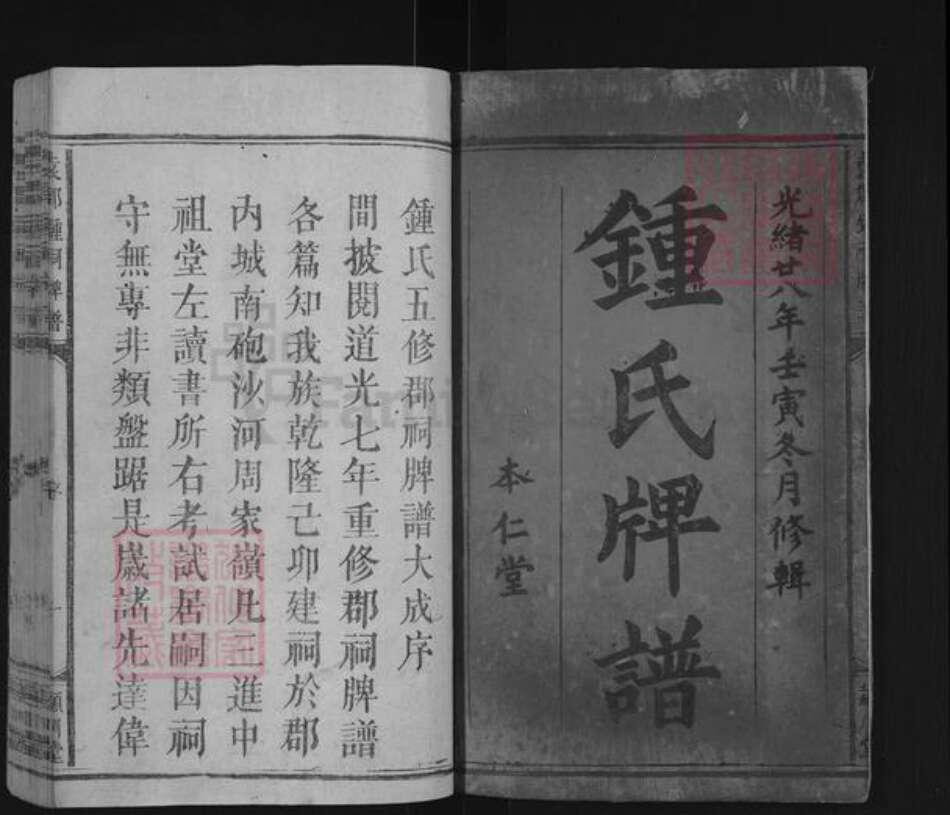 光緒廿八年壬寅冬月修輯
鍾氏牌譜
本仁堂
鍾氏五修郡祠牌譜大成序
間披閱道光七年重修郡祠牌譜
各篇知我族乾隆己卯建祠於郡
內城南砲沙河周家嶺凡三進中
祖堂左讀書所右考試居嗣因祠
守無專非類盤踞是歲諸先達偉
袁郡鍾祠牌譜